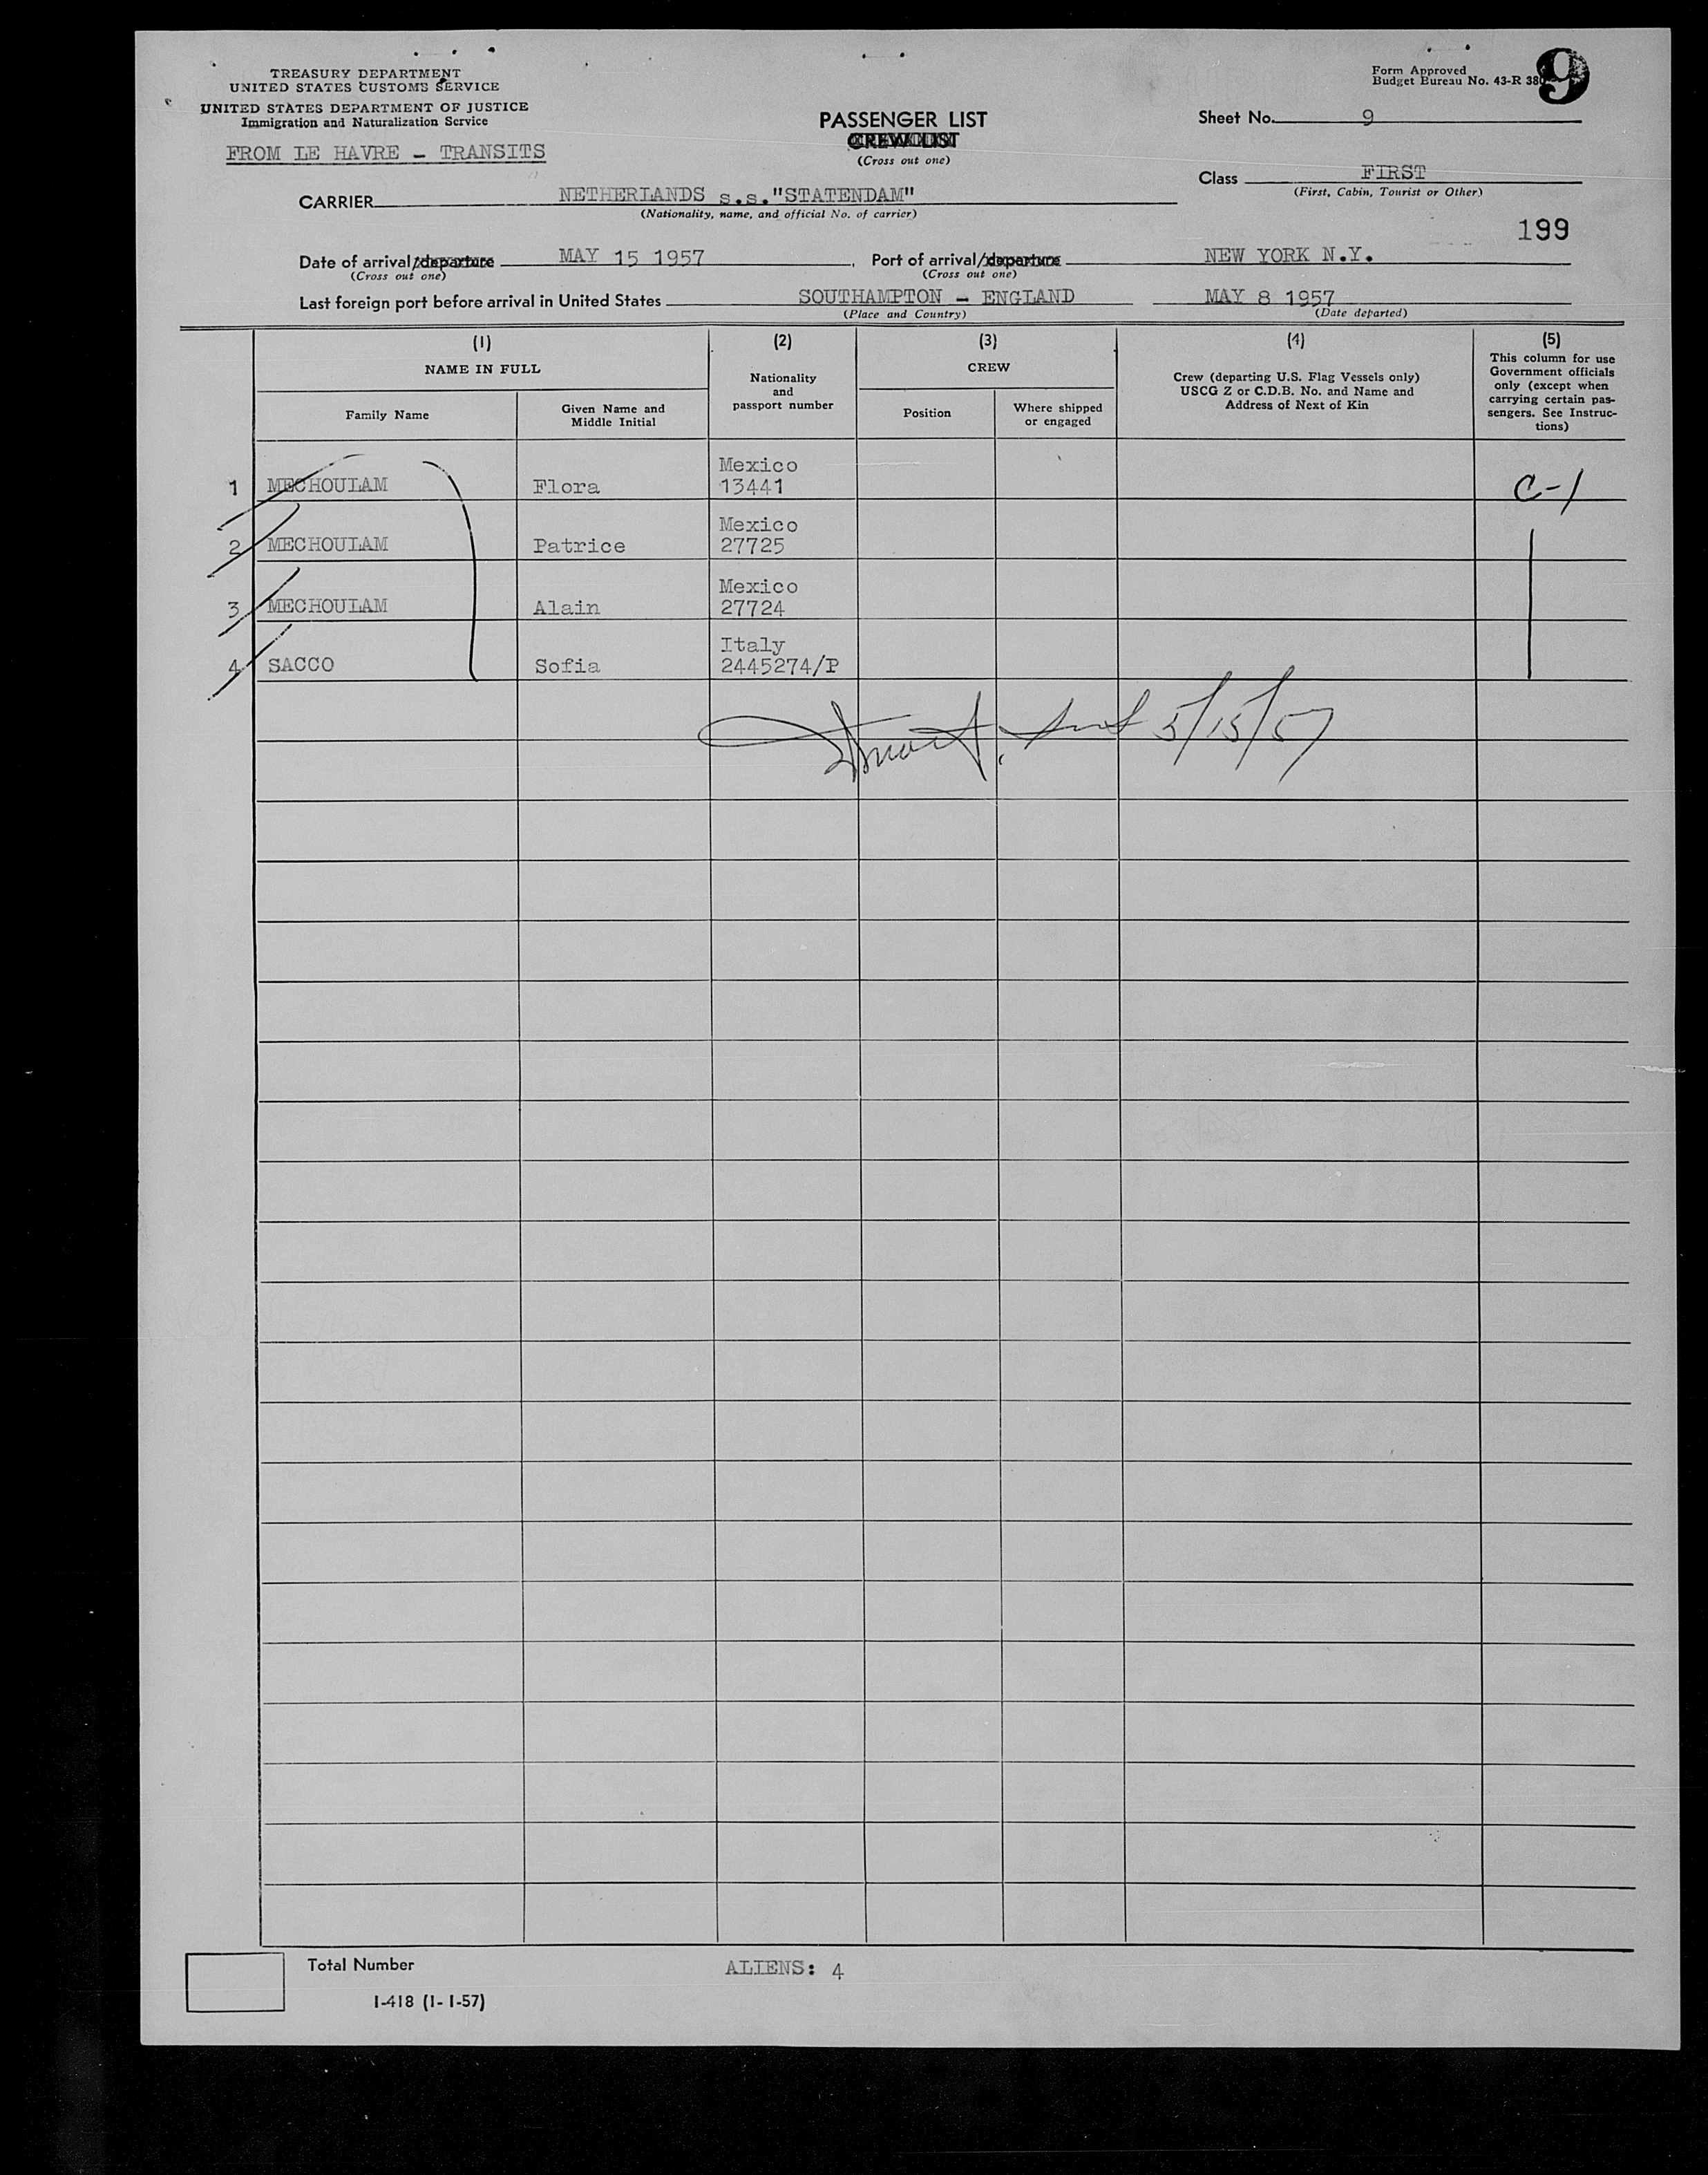 TREASURY DEPARTMENT
UNITED STATES CUSTOMS SERVICE
UNITED STATES DEPARTMENT OF JUSTICE
Immigration and Naturalization Service
FROM LE HAVRE - TRANSITS
Form Approved
Budget Bureau No. 43-R 38
9
PASSENGER LIST
CREW LIST
(Cross out one)
Sheet No. 9
Class FIRST
(First, Cabin, Tourist or Other)
CARRIER NETHERLANDS s.s. "STATENDAM"
(Nationality, name, and official No. of carrier)
199
Date of arrival/departure MAY 15 1957, Port of arrival/departure NEW YORK N.Y.
(Cross out one) (Cross out one)
Last foreign port before arrival in United States SOUTHAMPTON - ENGLAND MAY 8 1957
(Place and Country) (Date departed)
(1)
NAME IN FULL
Family Name
Given Name and
Middle Initial
(2)
Nationality
and
passport number
(3)
CREW
Position
Where shipped
or engaged
(4)
Crew (departing U.S. Flag Vessels only)
USCG Z or C.D.B. No. and Name and
Address of Next of Kin
(5)
This column for use
Government officials
only (except when
carrying certain pas-
sengers. See Instruc-
tions)
Mexico
1 MECHOULAM Flora 13441 C-1
Mexico
2 MECHOULAM Patrice 27725
Mexico
3 MECHOULAM Alain 27724
Italy
4 SACCO Sofia 2445274/P
5/15/57
Total Number ALIENS: 4
I-418 (1-1-57)